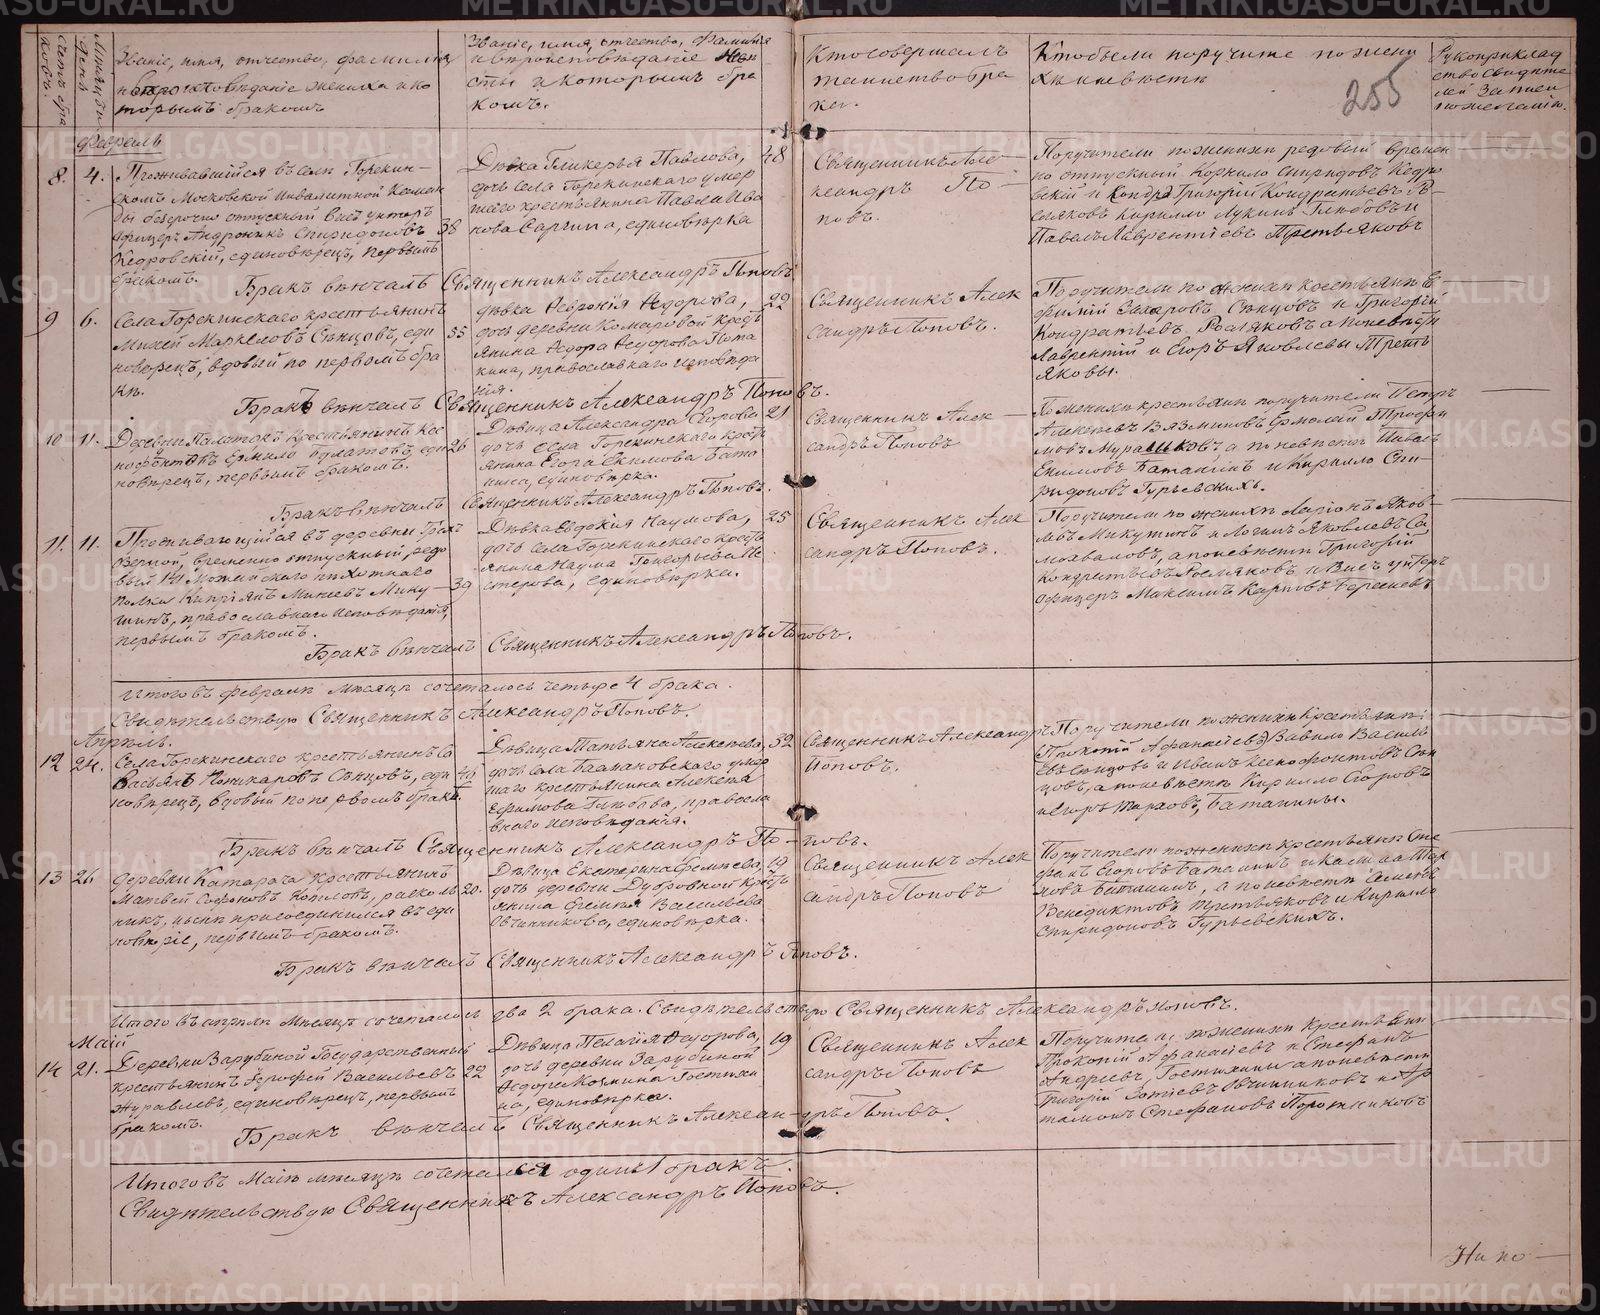 Счетъ бра
ковъ.
Мѣсяцъ и
день
Званіе, имя, отчество, фамилія
и вѣроисповѣданіе жениха и ко
торымъ бракомъ
Званіе, имя, отчество, фамилія
и вѣроисповѣданіе невѣ
сты и которымъ бра
комъ.
Кто совершалъ
таинство бра
ка.
Кто были поручите по жени
хѣ и невѣстѣ
255
Рукоприклад
ство свидѣте
лей записи
по желанію.
Февраль
8. 4. Проживавшійся въ селѣ Горскин-
скомъ Московской Инвалидной Коман
ды безсрочно отпускный Внс унтеръ
Офицеръ Андроникъ Спиридоновъ 38
Кедровскій, единовѣрецъ, первымъ
бракомъ.
Дѣвка Гликерья Павлова, 48
дочь села Горскинскаго умер
шаго крестьянина Павла Ива
нова Саргина, единовѣрка
Священникъ Але-
ксандръ По-
повъ.
Поручители по женихѣ редовый времен
но отпускный Корнило Спиридов Кедро
вскій и Григорій Кондратьевъ Ро-
сляковъ Кирилло Лукинъ Глѣбовъ и
Павелъ Лаврентіевъ Третьяковъ
Бракъ вѣнчалъ Священникъ Александръ Поповъ
9 6. Села Горскинскаго крестьянинъ
Михей Маркеловъ Сѣнцовъ, еди 35
новѣрецъ, вдовый по первомъ бра
кѣ.
дѣвка Февронія Федорова, 22
дочь деревни Комаровой крест
янина Федора Федорова Пота
кина, православнаго исповѣда
нія.
Священникъ Алек
сандръ Поповъ.
Поручители по женихѣ крестьяне Е
фимій Захаровъ Сѣнцовъ и Григорій
Кондратьевъ Росляковъ а по невѣстѣ
Лаврентій и Егоръ Яковлевы Треть
яковы.
Бракъ вѣнчалъ Священникъ Александръ Поповъ.
10 11. Деревни крестьянинъ Ксе
нофонтъ Ермило еди 26
новѣрецъ, первымъ бракомъ.
Дѣвица Александра Егорова 21
дочь села Горскинскаго крест
янина Егора Екимова Бата
нина, единовѣрка.
Священникъ Алек
сандръ Поповъ
По женихѣ крестьяне поручители Петръ
Алексѣевъ Вяземиновъ Ермолай Трофи
мовъ Мурашковъ, а по невѣстѣ Иванъ
Екимовъ Батанинъ и Кирилло Спи-
ридоновъ Гурьевскихъ.
Бракъ вѣнчалъ Священникъ Александръ Поповъ.
11. 11. Проживающійся въ деревни Грязн
озерной, временно отпускный, редо
вый 141 Можайскаго пѣхотнаго
полка Кипріянъ Минеевъ Мику- 39
шинъ, православнаго исповѣданія,
первымъ бракомъ.
Дѣвка Евдокія Наумова, 25
дочь села Горскинскаго крест
янина Наума Григорьева Не
стерова, единовѣрка.
Священникъ Алек
сандръ Поповъ.
Поручители по женихѣ Ларіонъ Яков-
левъ Микушинъ и Логинъ Яковлевъ Са
моваловъ, а по невѣстѣ Григорій
Кондратьевъ Росляковъ и Внс унтеръ
Офицеръ Максимъ Карповъ Гергенев
Бракъ вѣнчалъ Священникъ Александръ Поповъ.
Итого въ февралѣ мѣсяцѣ сочеталось четыре 4 брака.
Свидѣтельствую Священникъ Александръ Поповъ.
Апрѣль.
12 24. Села Горскинскаго крестьянинъ Са
Васьянъ Поликаровъ Сѣнцовъ, еди 46
новѣрецъ, вдовый по первомъ бракѣ.
Дѣвица Татьяна Алексѣева, 32
дочь села Басмановскаго умер
шаго крестьянина Алексѣя
Ефимова Глѣбова, правосла
внаго исповѣданія.
Священникъ Александръ
Поповъ.
Поручители по женихѣ крестьяне:
Прокопій Афанасіевъ, Вавило Василь
евъ Сѣнцовъ и Иванъ Ксенофонтовъ Сѣн
цовъ, а по невѣстѣ Кирилло Егоровъ
и Егоръ Марковъ, Батанины.
Бракъ вѣнчалъ Священникъ Александръ По-повъ.
13 26 деревни Катарача крестьянинъ
Матвей Софоновъ Копыловъ, расколь 20.
никъ, нынѣ присоединился въ еди
новѣріе, первымъ бракомъ.
Дѣвица Екатерина Еремѣева, 19
дочь деревни Дубровной крест
янина Еремѣя Васильева
Овчинникова, единовѣрка.
Священникъ Алек
сандръ Поповъ
Поручители по женихѣ крестьяне Сте
фанъ Егоровъ Батанинъ и Касьянъ Мар
ковъ Батанинъ, а по невѣстѣ Семенъ
Венедиктовъ Третьяковъ и Кирилло
Спиридоновъ Гурьевскихъ.
Бракъ вѣнчалъ Священникъ Александръ Поповъ.
Итого въ апрѣлѣ мѣсяцѣ сочеталось два 2 брака. Свидѣтельствую Священникъ Александръ Поповъ.
Май
14 21. Деревни Зарубиной Государственный
крестьянинъ Ерофей Васильевъ 22
Журавлевъ, единовѣрецъ, первымъ
бракомъ.
Дѣвица Пелагія Федорова, 19
дочь деревни Зарубиной
Федора Козмина Гостюхи
на, единовѣрка.
Священникъ Алек
сандръ Поповъ
Поручители по женихѣ крестьяни
Прокопій Афанасіевъ и Стефанъ
Андреевъ, Гостюхины а по невѣстѣ
Григорій Зотіевъ Овчинниковъ и Ар
тамонъ Стефановъ Поротниковъ
Бракъ вѣнчалъ Священникъ Александръ Поповъ.
Итого въ Маіѣ мѣсяцѣ сочетался одинъ 1 бракъ.
Свидѣтельствую Священникъ Александръ Поповъ.
Ни по-
METRIKI.GASO-URAL.RU